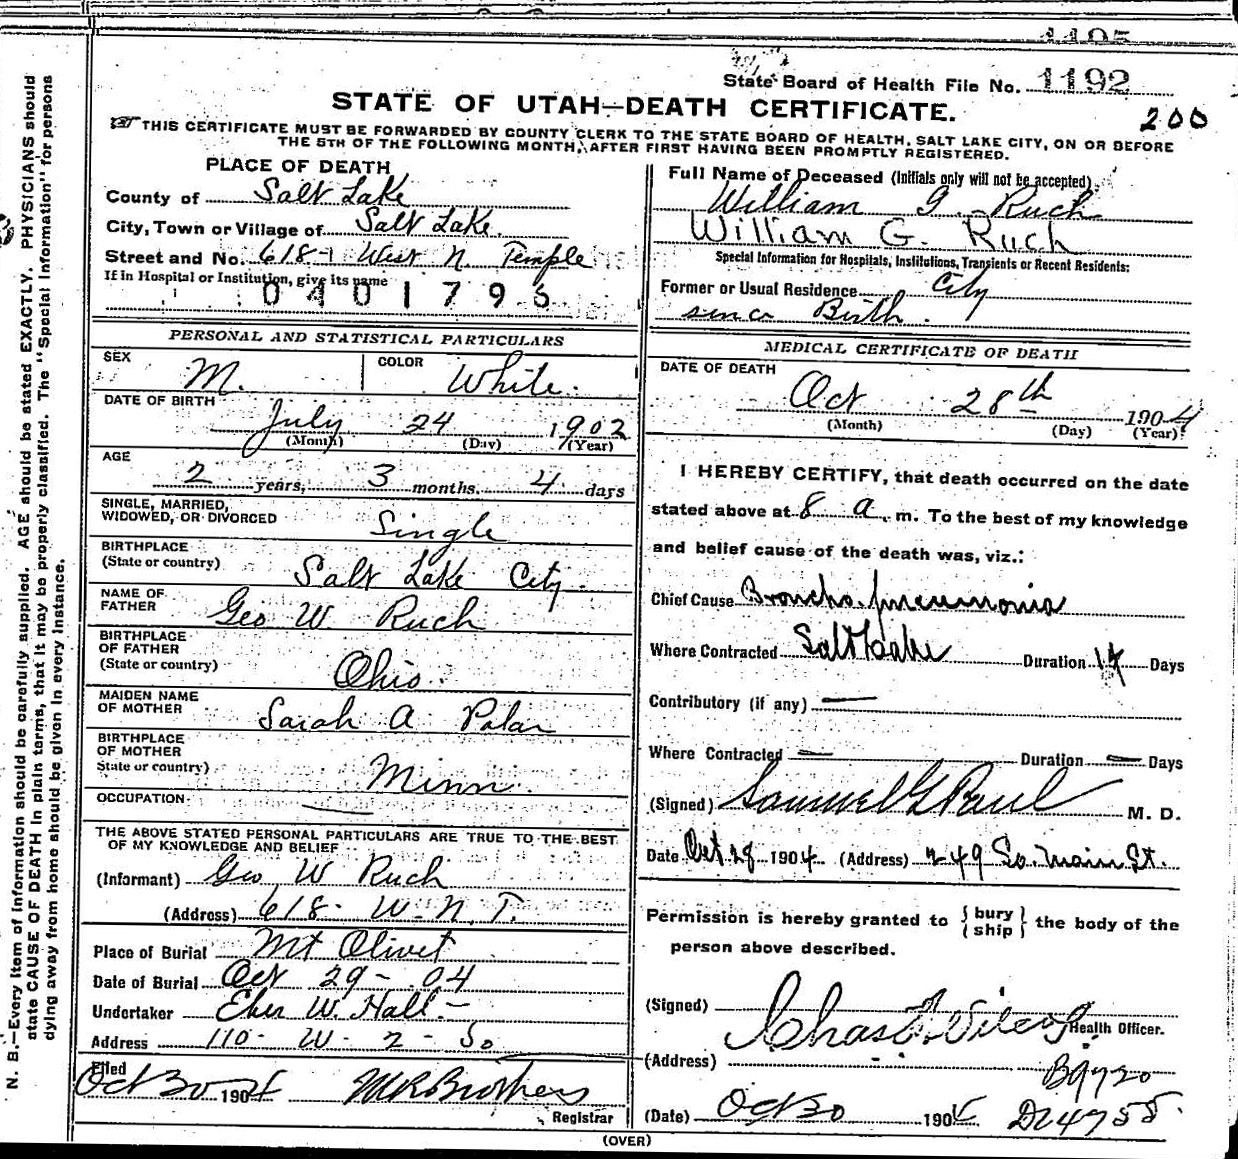 1195
State Board of Health File No. 1192
STATE OF UTAH—DEATH CERTIFICATE.
200
THIS CERTIFICATE MUST BE FORWARDED BY COUNTY CLERK TO THE STATE BOARD OF HEALTH, SALT LAKE CITY, ON OR BEFORE
THE 5TH OF THE FOLLOWING MONTH, AFTER FIRST HAVING BEEN PROMPTLY REGISTERED.
PLACE OF DEATH
County of Salt Lake
City, Town or Village of Salt Lake.
Street and No. 618 West N. Temple
If in Hospital or Institution, give its name
0401795
Full Name of Deceased (Initials only will not be accepted)
William G. Ruch
William G. Ruch
Special Information for Hospitals, Institutions, Transients or Recent Residents:
Former or Usual Residence City
since Birth.
PERSONAL AND STATISTICAL PARTICULARS
SEX M.
COLOR White.
DATE OF BIRTH
July 24 1902
(Month) (Day) (Year)
AGE
2 years, 3 months, 4 days
SINGLE, MARRIED,
WIDOWED, OR DIVORCED Single
BIRTHPLACE
(State or country) Salt Lake City
NAME OF
FATHER Geo W. Ruch
BIRTHPLACE
OF FATHER
(State or country) Ohio.
MAIDEN NAME
OF MOTHER Sarah A
BIRTHPLACE
OF MOTHER
State or country) Minn
OCCUPATION —
THE ABOVE STATED PERSONAL PARTICULARS ARE TRUE TO THE BEST
OF MY KNOWLEDGE AND BELIEF
(Informant) Geo W Ruch
(Address) 618 - W. N. T.
Place of Burial Mt Olivet
Date of Burial Oct 29 - 04
Undertaker Eber W. Hall -
Address 110 - W - 2 - So
Filed
Oct 30 1904
Registrar
MEDICAL CERTIFICATE OF DEATH
DATE OF DEATH
Oct 28th 1904
(Month) (Day) (Year)
I HEREBY CERTIFY, that death occurred on the date
stated above at 8 a. m. To the best of my knowledge
and belief cause of the death was, viz.:
Chief Cause Broncho-pneumonia
Where Contracted Salt Lake Duration 14 Days
Contributory (if any) —
Where Contracted — Duration — Days
(Signed) Samuel G Paul M. D.
Date Oct 28 1904 (Address) 249 So. Main St.
Permission is hereby granted to {bury
ship} the body of the
person above described.
(Signed) Chas F. Wilcox Health Officer.
(Address)
B9720
(Date) Oct 30 1904 D24755.
(OVER)
N. B.—Every item of information should be carefully supplied. AGE should be stated EXACTLY. PHYSICIANS should
state CAUSE OF DEATH in plain terms, that it may be properly classified. The "Special Information" for persons
dying away from home should be given in every instance.